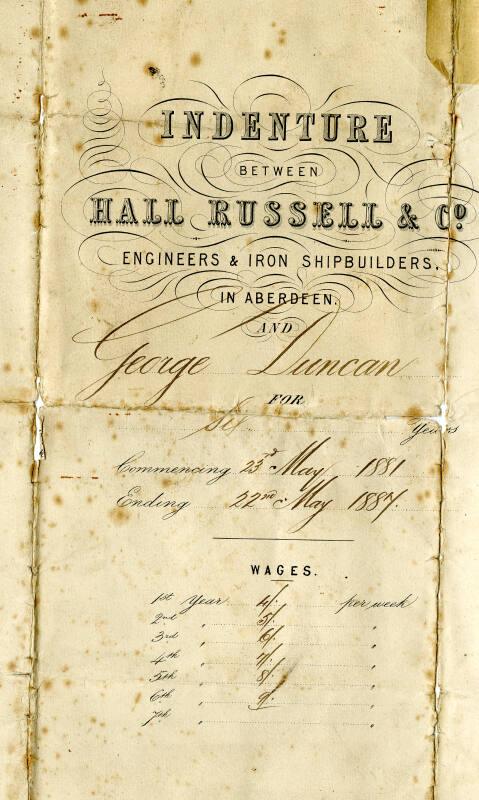 INDENTURE
BETWEEN
HALL RUSSELL & Co.
ENGINEERS & IRON SHIPBUILDERS,
IN ABERDEEN.
AND
George Duncan
FOR
Six Years
Commencing 23rd May 1881
Ending 22nd May 1887.
WAGES.
1st Year 4/. per week
2nd „ 5/. „
3rd „ 6/. „
4th „ 7/. „
5th „ 8/. „
6th „ 9/. „
7th „ „